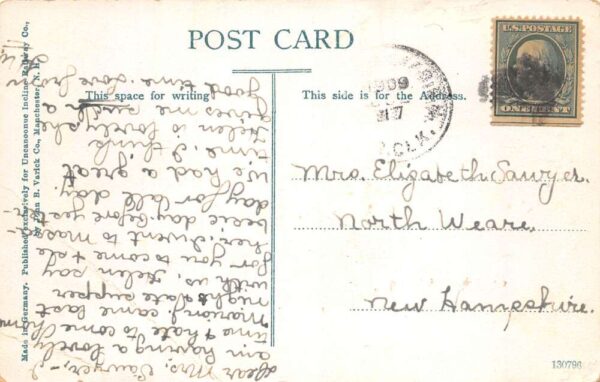 POST CARD
This space for writing
This side is for the Address.
U.S. POSTAGE
ONE CENT
CLK.
Mrs. Elizabeth Sawyer.
North Weare.
New Hampshire.
Dear Mrs. Sawyer, - I
am having a lovely
time & hate to come home
Marion J. came last
night & ate supper
with us. Helen say
for you to come & see
her. I went to Massa-
besic day before yester-
day for all day.
We had a great
time. I think
Helen is lovely she
gives me such a
good time. Love from
Made in Germany. Published exclusively for Uncanoonuc Incline Railway Co.,
by John B. Varick Co., Manchester, N. H.
130796